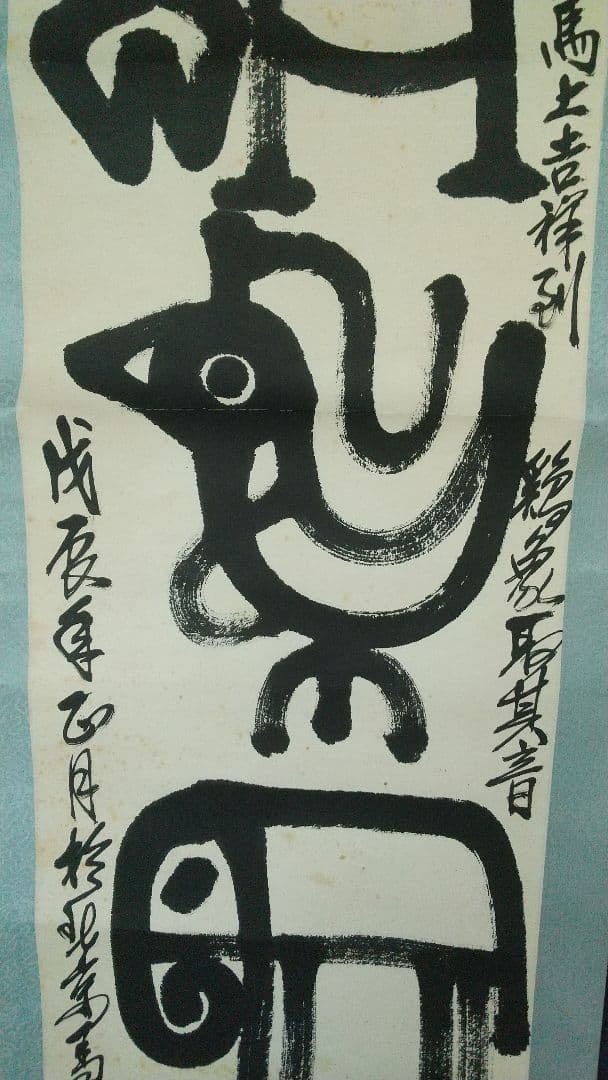 馬上吉祥到
鷄象取其音
戊辰年正月於北京馬